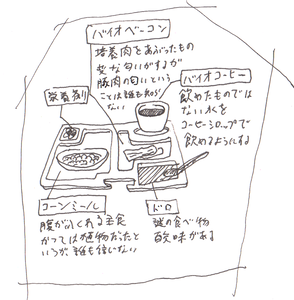 バイオベーコン
培養肉をあぶったもの
変な匂いがするが
豚肉の匂いという
ことは誰も知ら
ない
栄養剤
バイオコーヒー
飲めたものでは
ない水を
コーヒーシロップで
飲めるようにする
コーンミール
腹がふくれる主食
かつては植物だったと
いうが、誰も信じない
ドロ
謎の食べ物
酸味がある